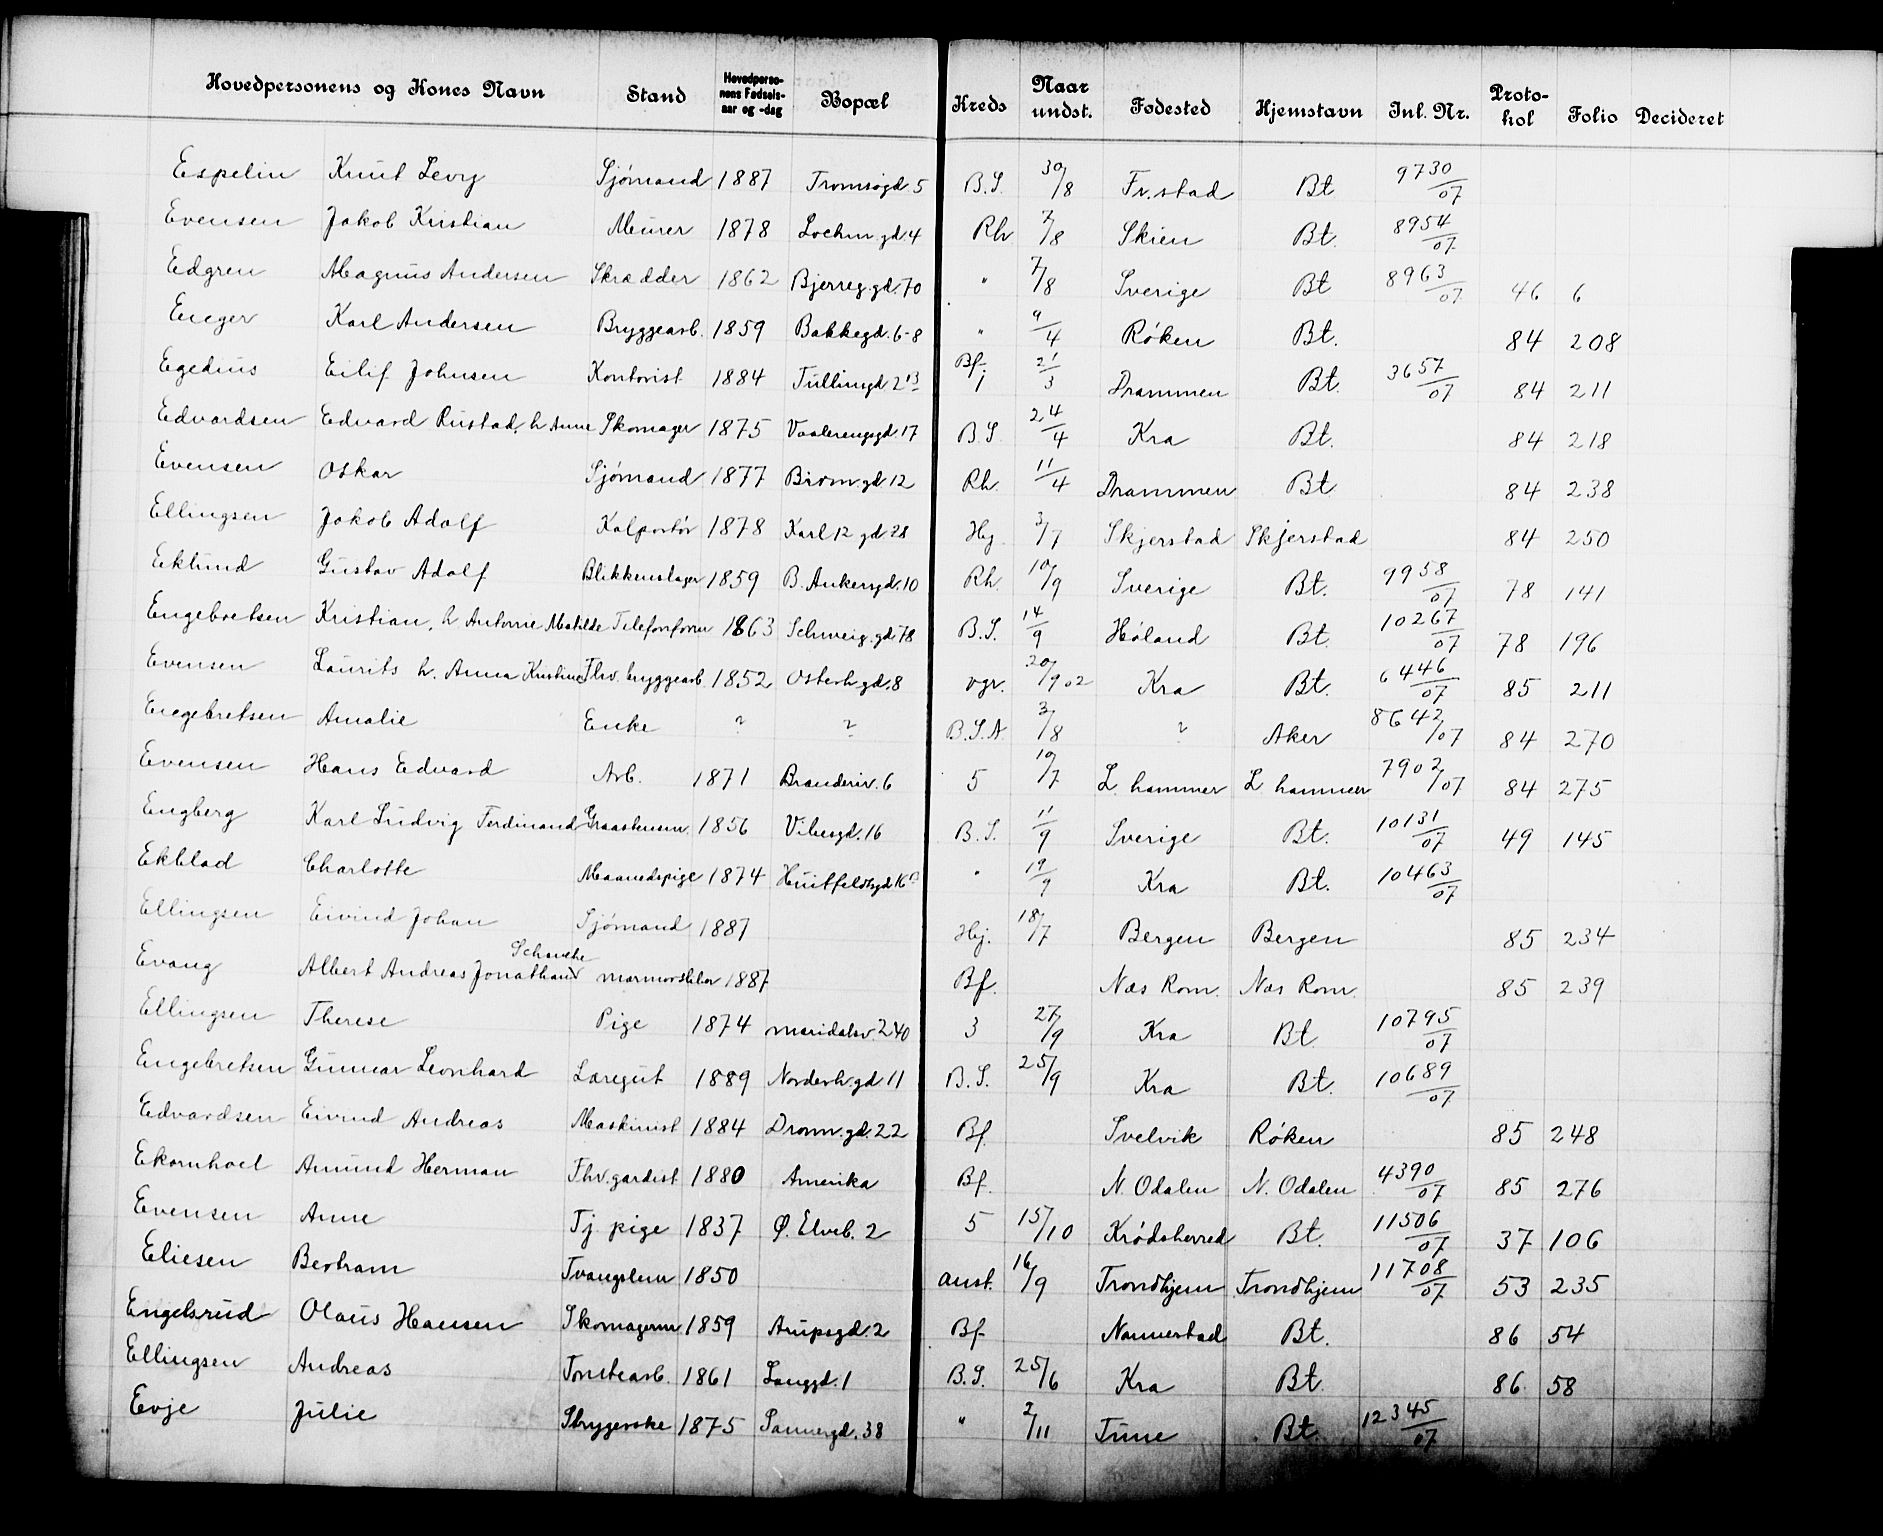 Hovedpersonens og Kones Navn Stand Hovedpersonens Fødsels-aar og -dag Bopæl Kreds Naar undst. Fødested Hjemstavn Inl. Nr. Protokol Folio Decideret
Espelin Knut Levy Sjømand 1887 Tromsøgd. 5 B.S. 30/8 Fr.stad Bt 9730/07
Evensen Jakob Kristian Murer 1878 Lochm.gd. 4 Rh 7/8 Skien Bt. 8954/07
Edgren Magnus Andersen Skrædder 1862 Bjerreg.gd. 70 " 7/8 Sverige Bt 8963/07 46 6
Enger Karl Andersen Bryggearb. 1859 Bakkegd. 6-8 " 9/4 Røken Bt. 84 208
Egedius Eilif Johnsen Kontorist 1884 Tullinsgd 2 Bf. 21/3 Drammen Bt. 3657/07 84 211
Edvardsen Edvard Rustad, h Anne Skomager 1875 Vaalerengsgd 17 B.S. 24/4 Kra Bt. 84 218
Evensen Oskar Sjømand 1877 gd 12 Rh. 11/4 Drammen Bt 84 238
Ellingsen Jakob Adolf Kolportør 1878 Karl 12 gd 28 Hj. 3/7 Skjerstad Skjerstad 84 250
Eklund Gustav Adolf Blikkenslager 1859 B. Ankersgd. 10 Rh. 10/9 Sverige Bt. 9958/07 78 141
Engebretsen Kristian, h Antonie Matilde Telefonform 1863 Schweig.gd 78 B.S. 14/9 Høland Bt. 10267/07 78 196
Evensen Laurits h. Anna Kristine Fhv. bryggearb. 1852 Osterh.gd. 8 vgr. 20/9 02 Kra Bt. 6446/07 85 211
Engebretsen Amalie Enke ? ? B.S.A 3/8 ? Aker 8642/07 84 270
Evensen Hans Edvard Arb. 1871 Branderiv. 6 5 10/7 L.hammer L.hammer 7902/07 84 275
Engberg Karl Ludvig Ferdinand 1856 Vibesgd. 16 B.S. 11/9 Sverige Bt. 10131/07 49 145
Ekblad Charlotte Maanedspige 1874 Huitfeldtsgd 16 " 19/9 Kra Bt. 10463/07
Ellingsen Eivind Johan Sjømand 1887 Hj. 18/7 Bergen Bergen 85 234
Evang Albert Andreas Jonathan Schanche marmorsliber 1887 Bf. Næs Rom. Næs Rom. 85 239
Ellingsen Therese Pige 1874 maridalsv. 240 3 27/9 Kra Bt. 10795/07
Engebretsen Gunnar Leonhard Læregut 1889 Norderh.gd 11 B.S. 25/9 Kra Bt. 10689/07
Edvardsen Eivind Andreas Maskinist 1884 Dronn.gd. 22 Bf. Svelvik Røken 85 248
Ekornhoel Amund Herman Fhv. gardist 1880 Amerika Bf. N. Odalen N. Odalen 4390/07 85 276
Evensen Anne Tj. pige 1837 Ø. Elveb. 2 5 15/10 Krødsherred Bt. 11506/07 37 106
Eliesen Bertram Tvangslem 1850 anst. 16/9 Trondhjem Trondhjem 11708/07 53 235
Engelsrud Olaus Hansen Skomagerm 1859 Arupsgd. 2 Bf. Nannestad Bt. 86 54
Ellingsen Andreas Tomtearb. 1861 Langgd. 1 B.S. 25/6 Kra Bt. 86 58
Evje Julie Strygerske 1875 Sannergd. 38 " 2/11 Tune Bt. 12345/07